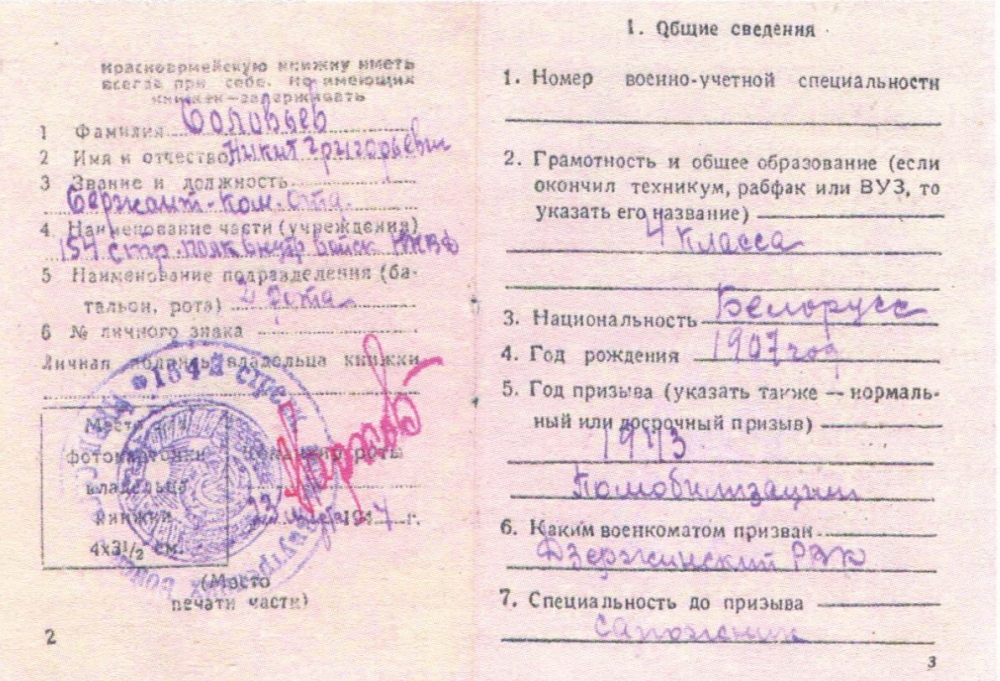 Красноармейскую книжку иметь
всегда при себе. Не имеющих
книжек—задерживать
1 Фамилия Соловьев
2 Имя и отчество Никит Григорьевич
3 Звание и должность
Сержант-Ком. Отд.
4 Наименование части (учреждения)
154 стр. полк внутр войск НКВД
5 Наименование подразделения (ба-
тальон, рота) 2 рота
6 № личного знака
Личная подпись владельца книжки
Место
фотокарточки
владельца
книжки
4х3 1/2 см.
Командир роты
23 194 7 г.
(Место
печати части)
2
1. Общие сведения
1. Номер военно-учетной специальности
2. Грамотность и общее образование (если
окончил техникум, рабфак или ВУЗ, то
указать его название)
4 класса
3. Национальность Белорусс
4. Год рождения 1907 год
5. Год призыва (указать также — нормаль-
ный или досрочный призыв)
1943
По мобилизации
6. Каким военкоматом призван
Дзержинский РВК
7. Специальность до призыва
сапожник
3